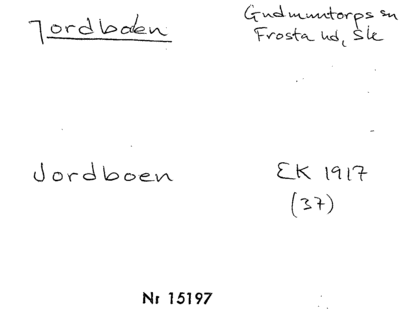 Jordboen
Gudmuntorps sn
Frosta hd, Sk
Jordboen
EK 1917
(37)
Nr 15197